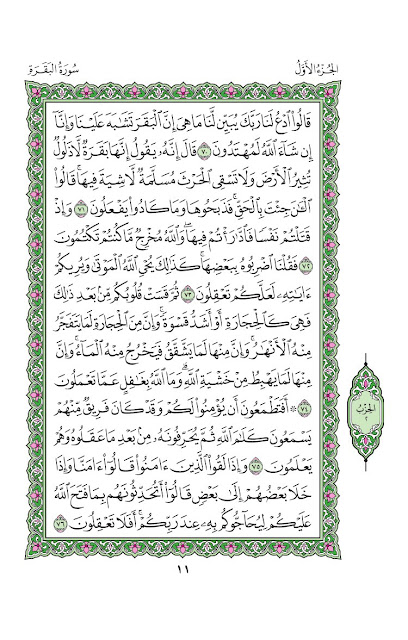 الجزء الأول
سورة البقرة
قَالُوا۟ ٱدْعُ لَنَا رَبَّكَ يُبَيِّن لَّنَا مَا هِيَ إِنَّ ٱلْبَقَرَ تَشَٰبَهَ عَلَيْنَا وَإِنَّآ
إِن شَآءَ ٱللَّهُ لَمُهْتَدُونَ ٧٠ قَالَ إِنَّهُۥ يَقُولُ إِنَّهَا بَقَرَةٌ لَّا ذَلُولٌ
تُثِيرُ ٱلْأَرْضَ وَلَا تَسْقِي ٱلْحَرْثَ مُسَلَّمَةٌ لَّا شِيَةَ فِيهَا ۚ قَالُوا۟
ٱلْـَٰٔنَ جِئْتَ بِٱلْحَقِّ ۚ فَذَبَحُوهَا وَمَا كَادُوا۟ يَفْعَلُونَ ٧١ وَإِذْ
قَتَلْتُمْ نَفْسًا فَٱدَّٰرَْٰٔتُمْ فِيهَا ۖ وَٱللَّهُ مُخْرِجٌ مَّا كُنتُمْ تَكْتُمُونَ
٧٢ فَقُلْنَا ٱضْرِبُوهُ بِبَعْضِهَا ۚ كَذَٰلِكَ يُحْيِ ٱللَّهُ ٱلْمَوْتَىٰ وَيُرِيكُمْ
ءَايَٰتِهِۦ لَعَلَّكُمْ تَعْقِلُونَ ٧٣ ثُمَّ قَسَتْ قُلُوبُكُم مِّنۢ بَعْدِ ذَٰلِكَ
فَهِيَ كَٱلْحِجَارَةِ أَوْ أَشَدُّ قَسْوَةً ۚ وَإِنَّ مِنَ ٱلْحِجَارَةِ لَمَا يَتَفَجَّرُ
مِنْهُ ٱلْأَنْهَٰرُ ۚ وَإِنَّ مِنْهَا لَمَا يَشَّقَّقُ فَيَخْرُجُ مِنْهُ ٱلْمَآءُ ۚ وَإِنَّ
مِنْهَا لَمَا يَهْبِطُ مِنْ خَشْيَةِ ٱللَّهِ ۗ وَمَا ٱللَّهُ بِغَٰفِلٍ عَمَّا تَعْمَلُونَ
٧٤ ۞ أَفَتَطْمَعُونَ أَن يُؤْمِنُوا۟ لَكُمْ وَقَدْ كَانَ فَرِيقٌ مِّنْهُمْ
يَسْمَعُونَ كَلَٰمَ ٱللَّهِ ثُمَّ يُحَرِّفُونَهُۥ مِنۢ بَعْدِ مَا عَقَلُوهُ وَهُمْ
يَعْلَمُونَ ٧٥ وَإِذَا لَقُوا۟ ٱلَّذِينَ ءَامَنُوا۟ قَالُوٓا۟ ءَامَنَّا وَإِذَا
خَلَا بَعْضُهُمْ إِلَىٰ بَعْضٍ قَالُوٓا۟ أَتُحَدِّثُونَهُم بِمَا فَتَحَ ٱللَّهُ
عَلَيْكُمْ لِيُحَآجُّوكُم بِهِۦ عِندَ رَبِّكُمْ ۚ أَفَلَا تَعْقِلُونَ ٧٦
الحزب
٢
١١